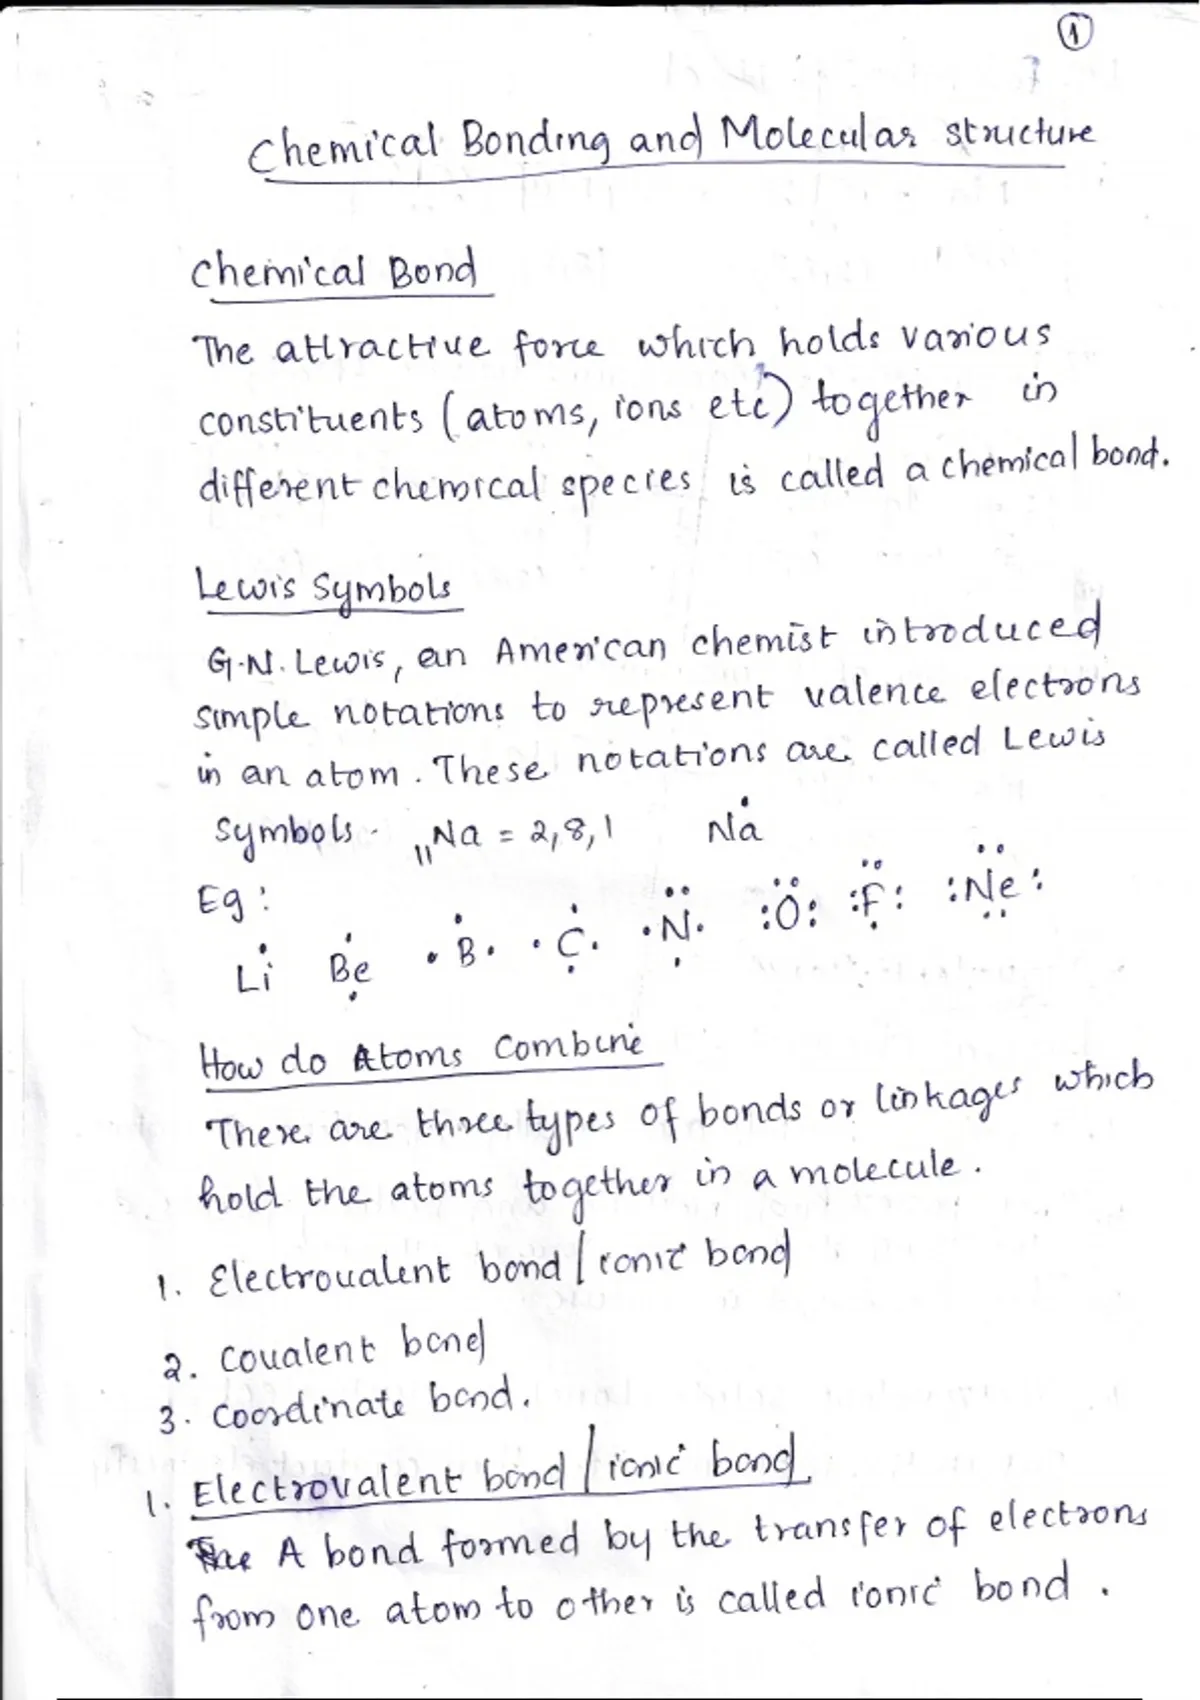 1
Chemical Bonding and Molecular structure
Chemical Bond
The attractive force which holds various
constituents (atoms, ions etc) together in
different chemical species is called a chemical bond.
Lewis Symbols
G.N. Lewis, an American chemist introduced
simple notations to represent valence electrons
in an atom. These notations are called Lewis
Symbols. ₁₁Na = 2,8,1 Na
Eg:
Li Be B C N O F Ne
How do Atoms Combine
There are three types of bonds or linkages which
hold the atoms together in a molecule.
1. Electrovalent bond / ionic bond
2. Covalent bond
3. Coordinate bond.
1. Electrovalent bond / ionic bond
A bond formed by the transfer of electrons
from one atom to other is called ionic bond.